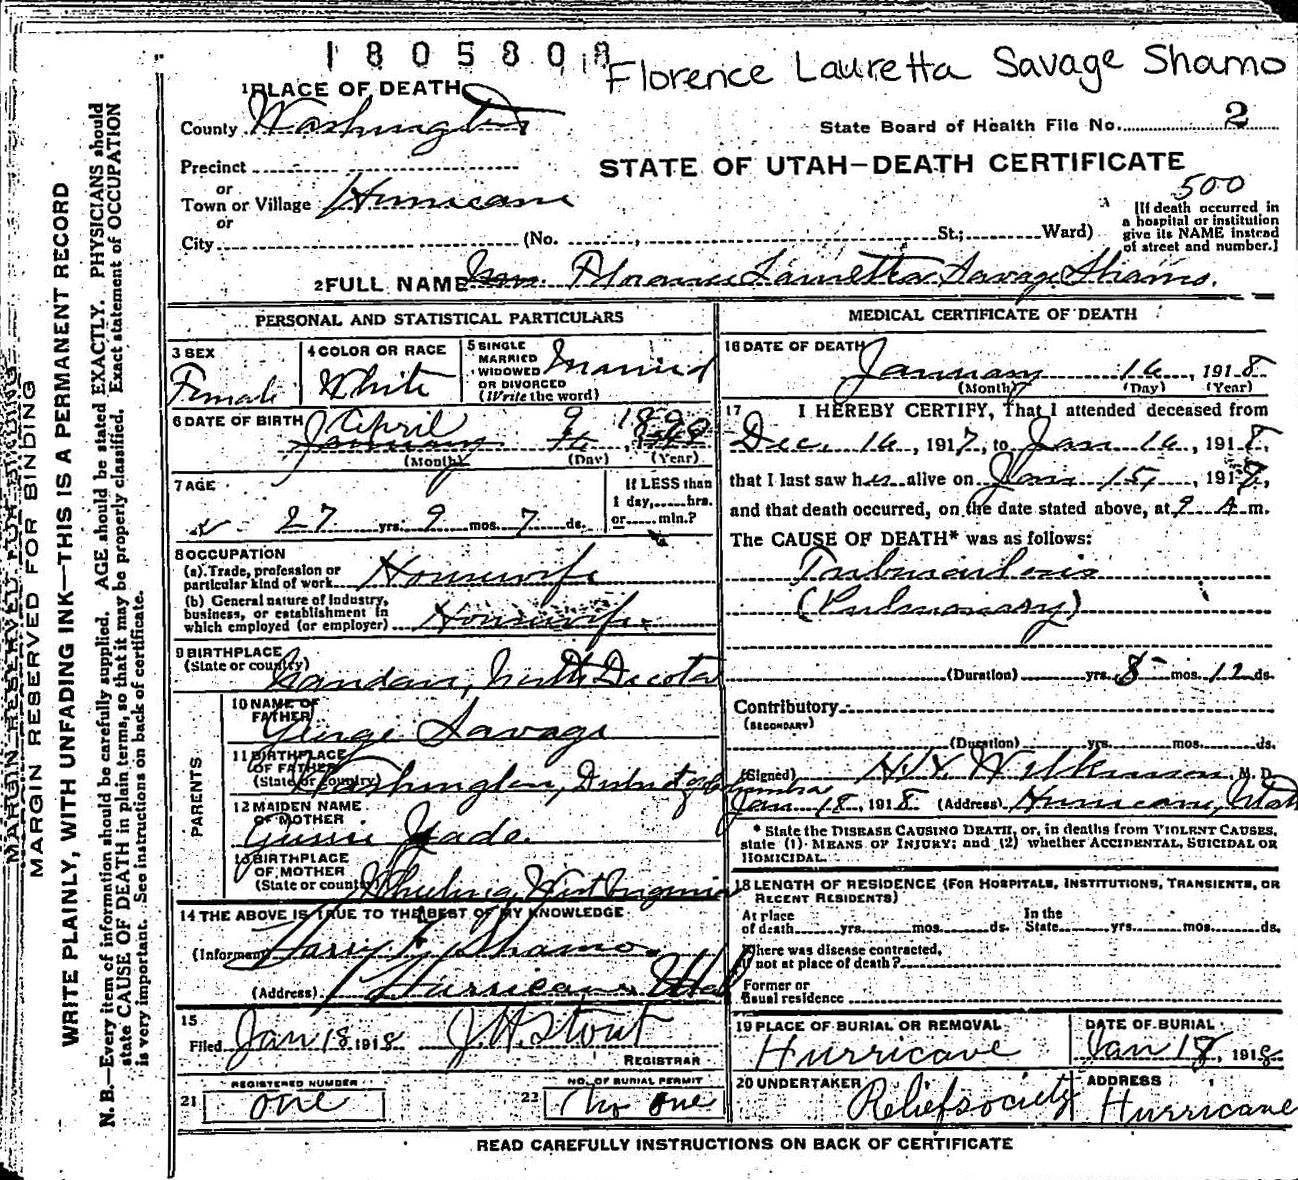 1805808
Florence Lauretta Savage Shamo
1 PLACE OF DEATH
County Washington
State Board of Health File No. 2
Precinct
STATE OF UTAH—DEATH CERTIFICATE
or
500
Town or Village Hurricane
or
[If death occurred in a hospital or institution give its NAME instead of street and number.]
City (No. , St.; Ward)
2 FULL NAME Florence Lauretta Savage Shamo.
PERSONAL AND STATISTICAL PARTICULARS
3 SEX
Female
4 COLOR OR RACE
White
5 SINGLE MARRIED WIDOWED OR DIVORCED (Write the word)
Married
6 DATE OF BIRTH April 9 1890
January
(Month) (Day) (Year)
7 AGE
27 yrs. 9 mos. 7 ds.
If LESS than 1 day, hrs. or min.?
8 OCCUPATION
(a) Trade, profession or particular kind of work Housewife
(b) General nature of industry, business, or establishment in which employed (or employer) Housewife.
9 BIRTHPLACE
(State or country) North Dacota
PARENTS
10 NAME OF FATHER
George Savage
11 BIRTHPLACE OF FATHER
(State or country) Washington, District of Columbia
12 MAIDEN NAME OF MOTHER
13 BIRTHPLACE OF MOTHER
(State or country) Wheeling, West Virginia
14 THE ABOVE IS TRUE TO THE BEST OF MY KNOWLEDGE
(Informant) Harry F. Shamo.
(Address) Hurricane Utah
15
Filed Jan 18 1918 J. H. Stout
REGISTRAR
REGISTERED NUMBER
21 one
NO. OF BURIAL PERMIT
22 No one
MEDICAL CERTIFICATE OF DEATH
16 DATE OF DEATH
January 16, 1918
(Month) (Day) (Year)
17 I HEREBY CERTIFY, That I attended deceased from
Dec. 16, 1917, to Jan 16, 1918,
that I last saw her alive on Jan 15, 1918,
and that death occurred, on the date stated above, at 2 A m.
The CAUSE OF DEATH* was as follows:
Tuberculosis
(Pulmonary)
(Duration) yrs. 8 mos. 12 ds.
Contributory
(SECONDARY)
(Duration) yrs. mos. ds.
(Signed) Wilkinson M. D.
Jan 18, 1918 (Address) Hurricane, Utah
* State the DISEASE CAUSING DEATH, or, in deaths from VIOLENT CAUSES,
state (1) MEANS OF INJURY; and (2) whether ACCIDENTAL, SUICIDAL OR
HOMICIDAL.
18 LENGTH OF RESIDENCE (FOR HOSPITALS, INSTITUTIONS, TRANSIENTS, OR
RECENT RESIDENTS)
At place of death yrs. mos. ds. In the State yrs. mos. ds.
Where was disease contracted,
if not at place of death?
Former or
usual residence
19 PLACE OF BURIAL OR REMOVAL
Hurricane
DATE OF BURIAL
Jan 18, 1918
20 UNDERTAKER
Relief society
ADDRESS
Hurricane
READ CAREFULLY INSTRUCTIONS ON BACK OF CERTIFICATE
MARGIN RESERVED FOR BINDING
MARGIN RESERVED FOR BINDING
WRITE PLAINLY, WITH UNFADING INK—THIS IS A PERMANENT RECORD
N. B.—Every item of information should be carefully supplied. AGE should be stated EXACTLY. PHYSICIANS should
state CAUSE OF DEATH in plain terms, so that it may be properly classified. Exact statement of OCCUPATION
is very important. See instructions on back of certificate.